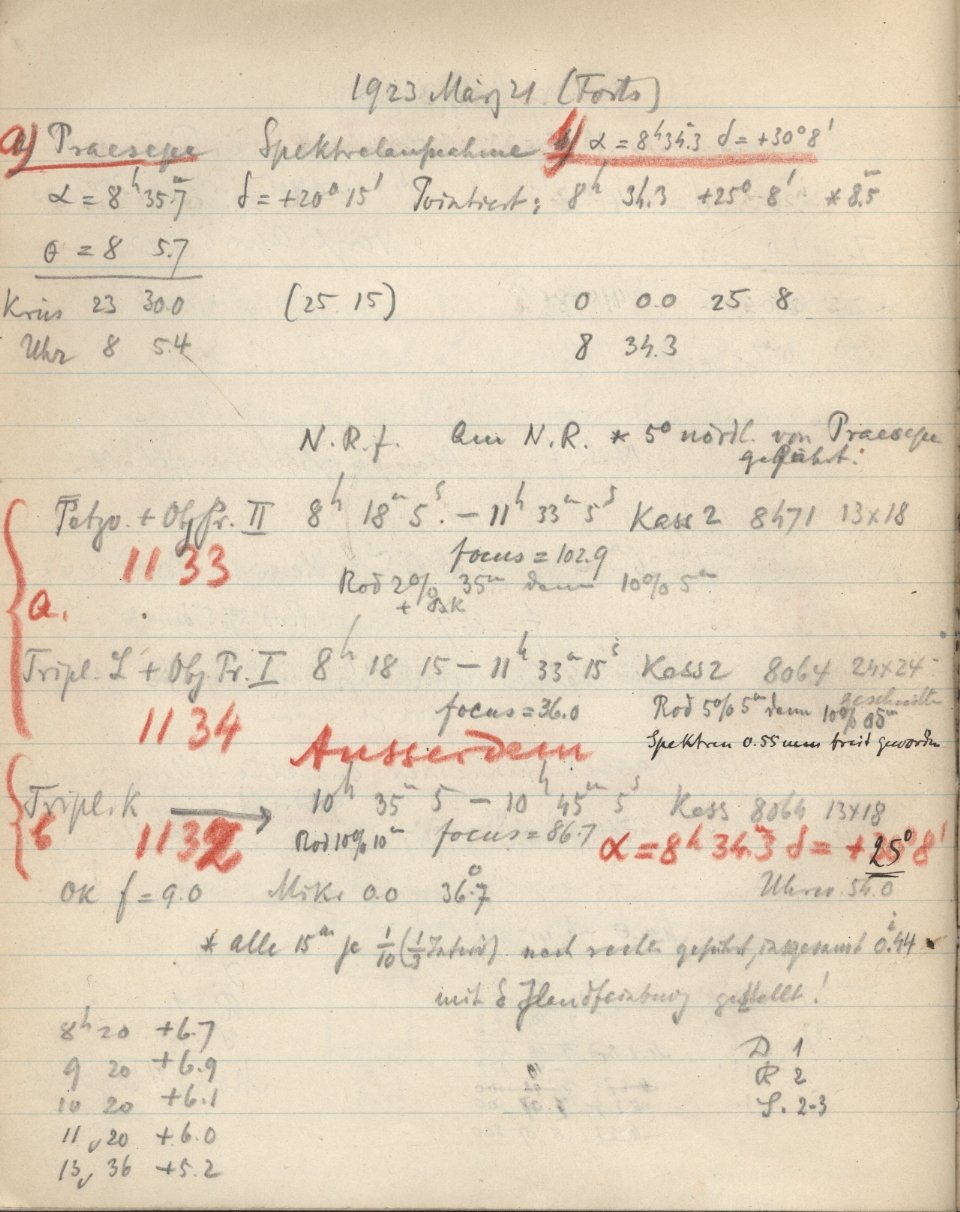 1923 März 21 (Forts)
a) Praesepe Spektralaufnahme b) α = 8h 34.3 δ = +30° 8'
α = 8h 35.7m δ = +20° 15' Pointiert: 8h 34.3 +25° 8' * 8.5m
θ = 8 5.7
Kreis 23 30.0 (25 15) 0 0.0 25 8
Uhr 8 5.4 8 34.3
N.R.f. Am N.R. * 5° nördl. von Praesepe
geführt.
Petzv. + Obj Pr. II 8h 18m 5s. – 11h 33m 5s Kass 2 8471 13x18
1133 focus = 102.9
Rod 2% 35m dann 10% 5m
a.
Tripl. L + Obj Pr. I 8h 18 15 – 11h 33m 15s Kass 2 8064 24x24
geschnitten
1134 focus = 36.0 Rod 5% 5m dann 10% 35m
Ausserdem Spektren 0.55 mm breit geworden
Tripl. K → 10h 35m 5 – 10h 45m 5s Kass 8064 13x18
b 1132 Rod 10% 10m focus = 86.7 α = 8h 34.3 δ = +25° 8'
OK f = 9.0 Mikr 0.0 36.7° Uhrw. 54.0
* alle 15m je 1/10 (1/5 Interv) nach rechts geführt, insgesamt 0.44
mit δ gestellt!
8h 20 +6.7
9 20 +6.9
10 20 +6.1
11 20 +6.0
13 36 +5.2
D 1
R 2
S. 2-3